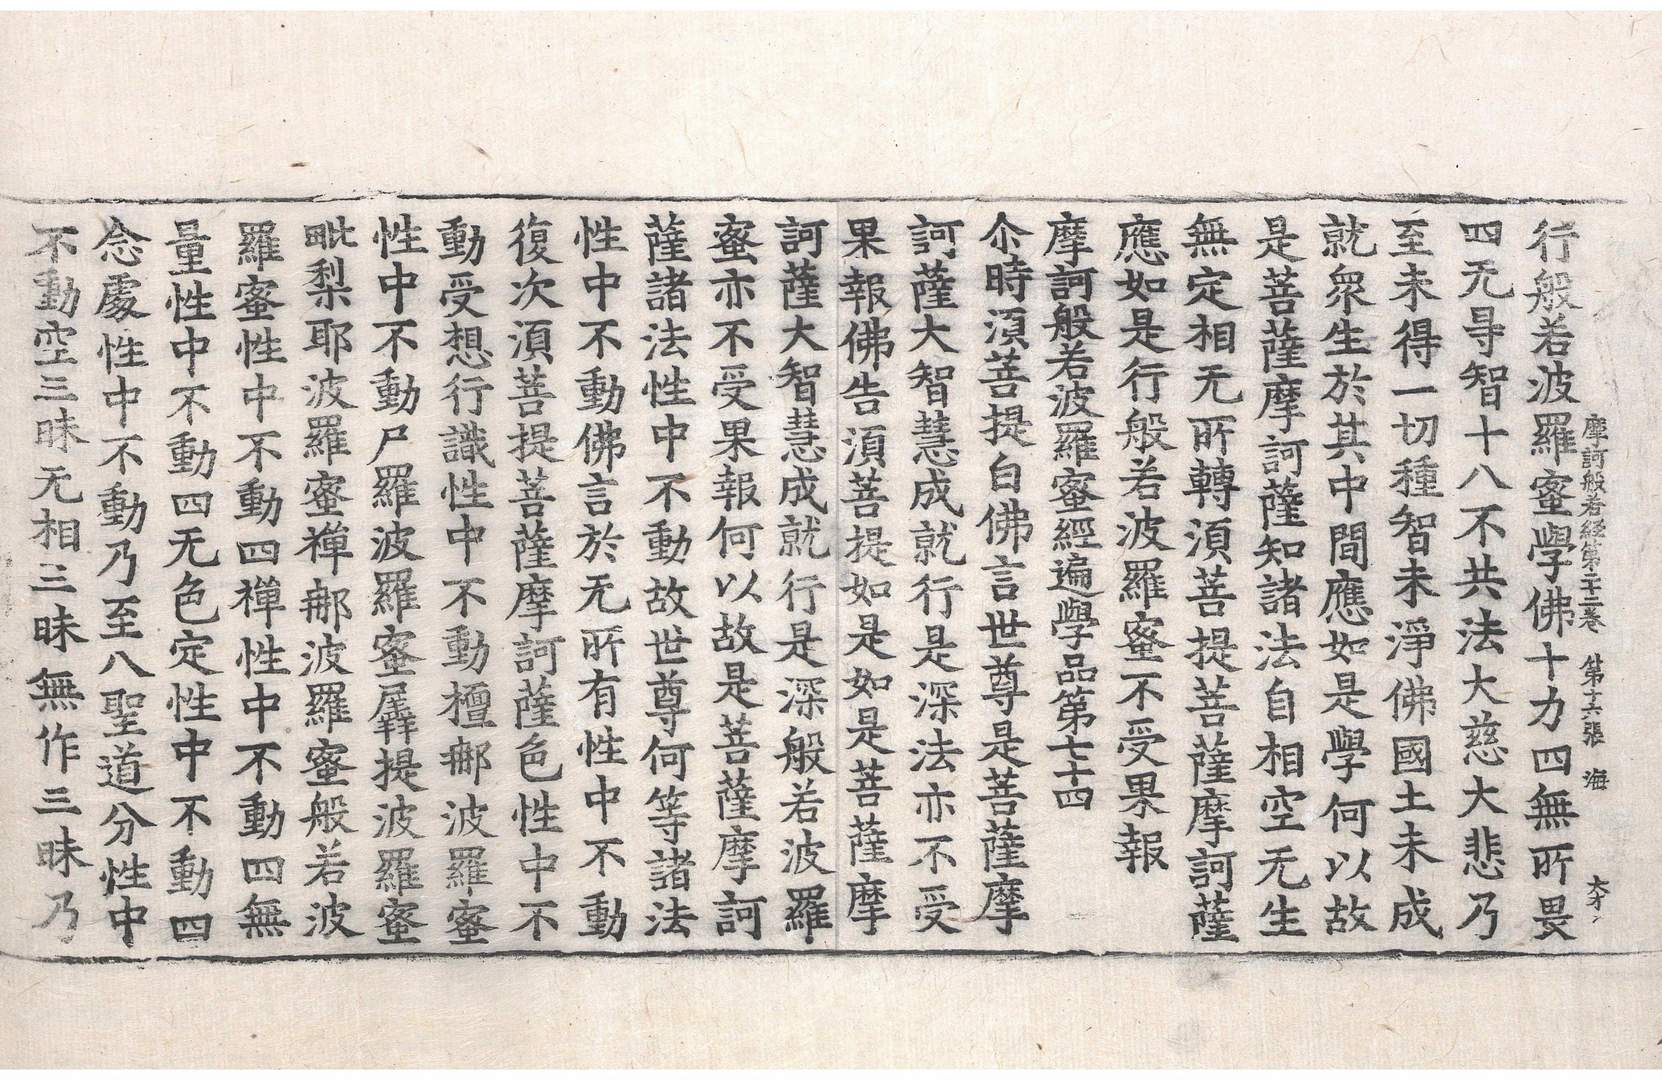 摩訶般若經第二十二卷 第十六張 海
行般若波羅蜜學佛十力四無所畏
四无㝵智十八不共法大慈大悲乃
至未得一切種智未淨佛國土未成
就衆生於其中間應如是學何以故
是菩薩摩訶薩知諸法自相空无生
無定相无所轉須菩提菩薩摩訶薩
應如是行般若波羅蜜不受果報
摩訶般若波羅蜜經遍學品第七十四
尒時須菩提白佛言世尊是菩薩摩
訶薩大智慧成就行是深法亦不受
果報佛告須菩提如是如是菩薩摩
訶薩大智慧成就行是深般若波羅
蜜亦不受果報何以故是菩薩摩訶
薩諸法性中不動故世尊何等諸法
性中不動佛言於无所有性中不動
復次須菩提菩薩摩訶薩色性中不
動受想行識性中不動檀𨚗波羅蜜
性中不動尸羅波羅蜜羼提波羅蜜
毗梨耶波羅蜜禪𨚗波羅蜜般若波
羅蜜性中不動四禪性中不動四無
量性中不動四无色定性中不動四
念處性中不動乃至八聖道分性中
不動空三昧无相三昧無作三昧乃